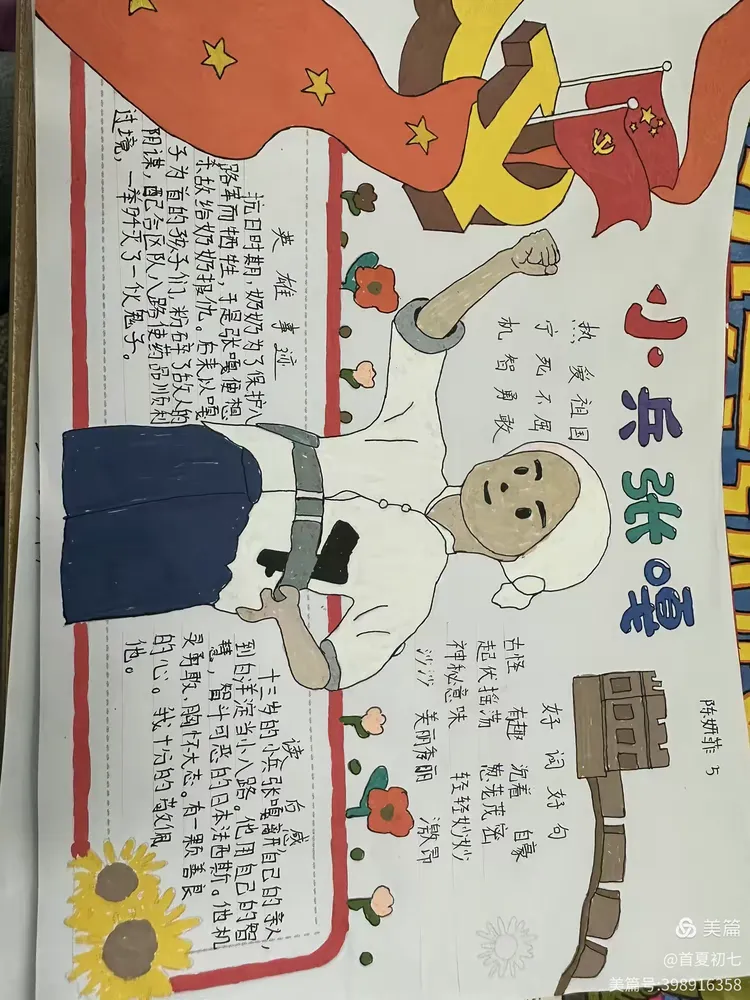 陈妍菲 5
小兵张嘎
热爱祖国
宁死不屈
机智勇敢
英雄事迹
抗日时期,奶奶为了保护八
路军而牺牲,于是张嘎便想
杀敌给奶奶报仇。后来以嘎
子为首的孩子们,粉碎了敌人的
阴谋,配合区队八路使药品顺利
过境,一举歼灭了一伙鬼子。
好词好句
古怪 有趣 沉着 自豪
起伏摇荡 葱茏茂密
神秘意味 轻轻妙妙
沙沙 美丽秀丽 激昂
读后感
十三岁的小兵张嘎离开自己的亲人,
到白洋淀当小八路。他用自己的智
慧,智斗可恶的日本法西斯。他机
灵勇敢,胸怀大志。有一颗善良
的心。我十分的敬佩
他。
美篇
@首夏初七
美篇号:398916358